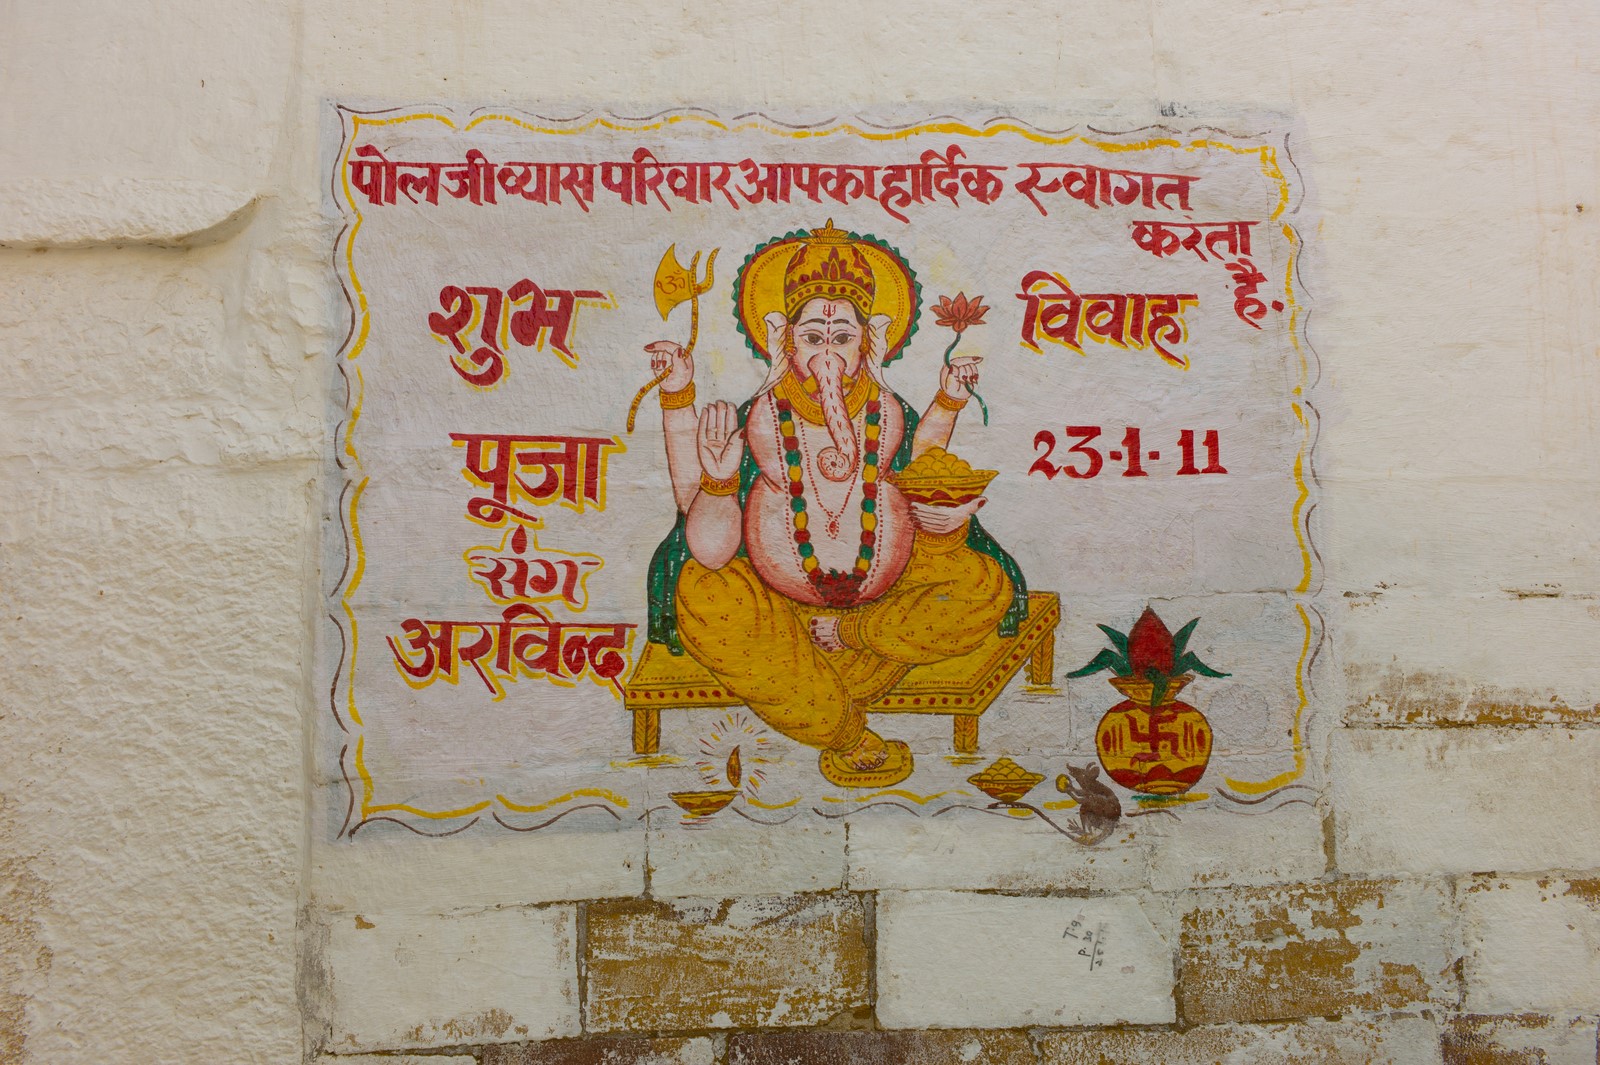 पोलजी व्यास परिवार आपका हार्दिक स्वागत
करता
है.
शुभ विवाह
पूजा 23-1-11
संग
अरविन्द
ॐ